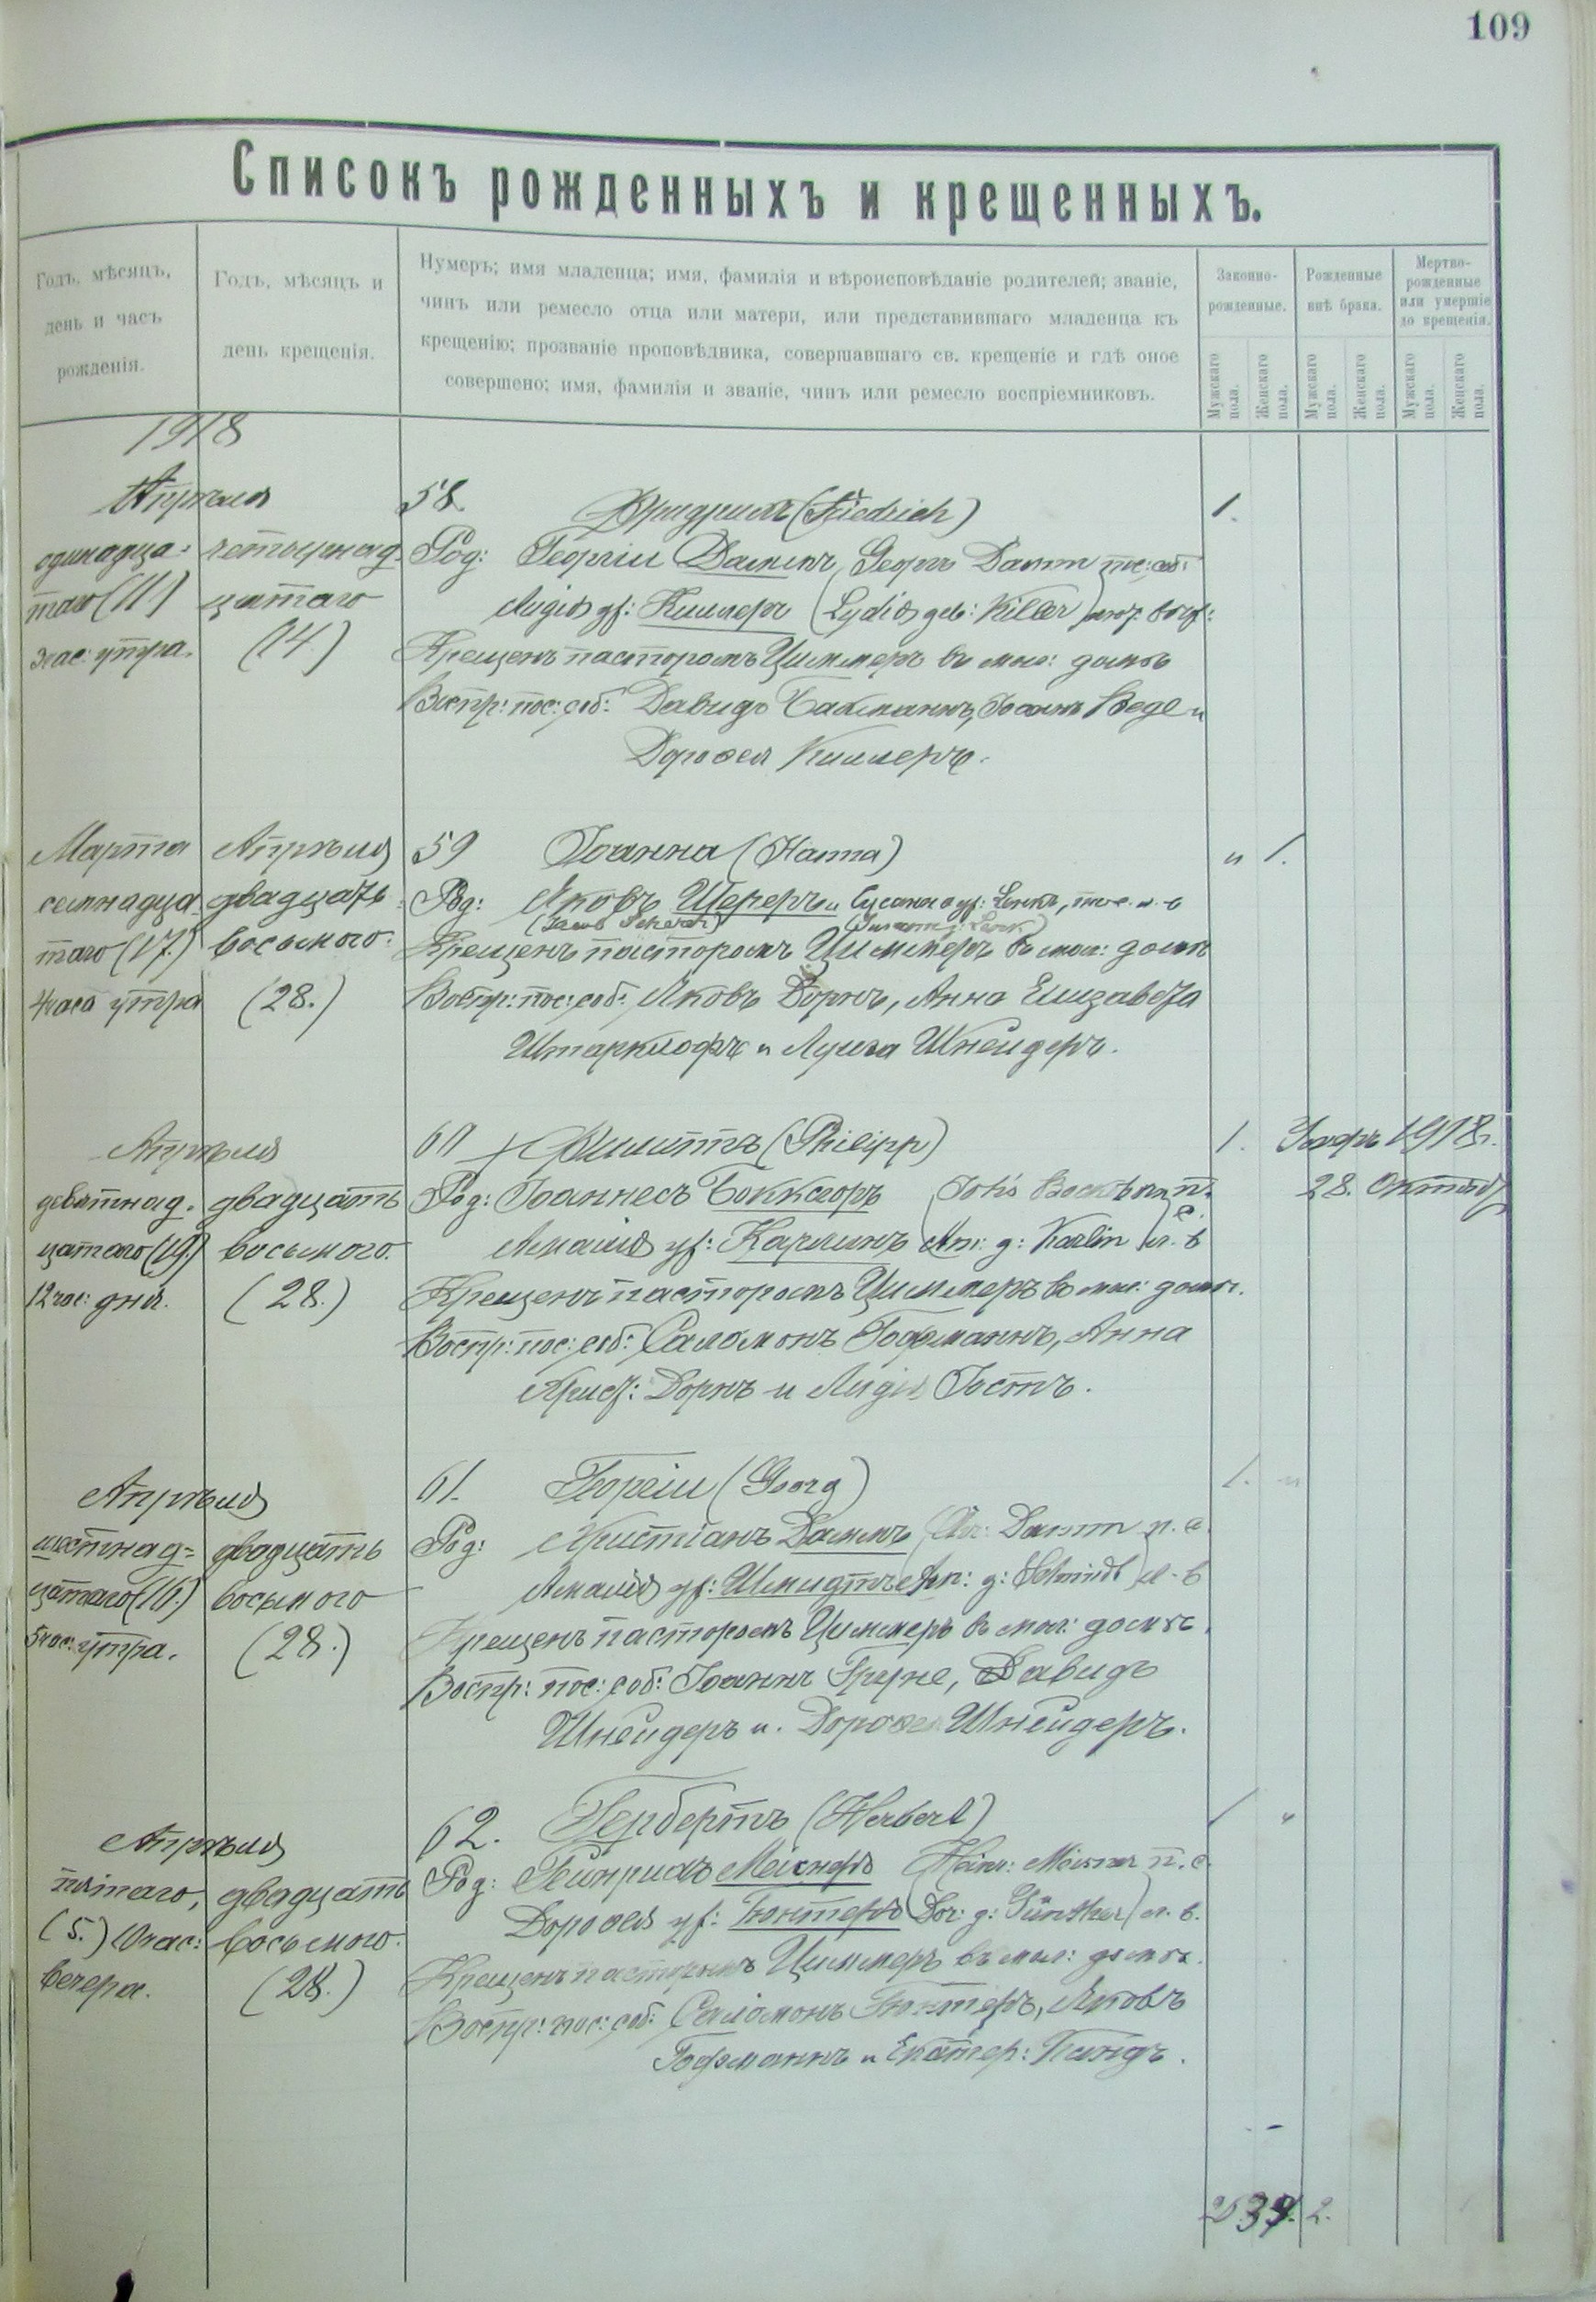 109
Списокъ рожденныхъ и крещенныхъ.
Годъ, мѣсяцъ, день и часъ рожденія.
Годъ, мѣсяцъ и день крещенія.
Нумеръ; имя младенца; имя, фамилія и вѣроисповѣданіе родителей; званіе,
чинъ или ремесло отца или матери, или представившаго младенца къ
крещенію; прозваніе проповѣдника, совершавшаго св. крещеніе и гдѣ оное
совершено; имя, фамилія и званіе, чинъ или ремесло воспріемниковъ.
Законно-рожденные.
Рожденные внѣ брака.
Мертво-рожденные или умершіе до крещенія.
Мужскаго пола.
Женскаго пола.
Мужскаго пола.
Женскаго пола.
Мужскаго пола.
Женскаго пола.
1918
Апрѣля
58. Фридрихъ (Friedrich) 1.
одинадца- четырнад- Род: Георгій Даммъ (Георгъ Damm пос: соб:
таго (11) цатаго Лидія ур: Киллеръ (Lydia geb: Killer)
час: утра. (14) Крещенъ пасторомъ Циммеръ въ мол: домѣ
Воспр: пос: соб: Давидъ Бахманнъ, Іоаннъ Боде и
Доротея Киллеръ.
Марта Апрѣля 59 Іоанна (Hanna) " 1.
семнадца- двадцать Род: Яковъ Шереръ и Сусанна ур: Ленкъ, пос. с. л. в
(Jacob Scherer)
таго (17.) восьмого. Крещенъ пасторомъ Циммеръ въ мол: домѣ
4 часа утра (28.) Воспр: пос: соб: Яковъ Дорнъ, Анна Елизавета
Штарклофъ и Луиза Шнейдеръ.
Апрѣля 60 + Филиппъ (Philipp) 1. Умеръ 1918 г.
девятнад- двадцать Род: Іоаннесъ Боккгорнъ п. с. 28. Октяб
цатаго (19) восьмого. Амалія ур: Карлинъ (Am: g: Karlin) л. в
12 час: дня. (28.) Крещенъ пасторомъ Циммеръ въ мол: домѣ.
Воспр: пос: соб: Саломонъ Гофманнъ, Анна
Крист: Дорнъ и Лидія Гостъ.
Апрѣля 61. Георгій (Georg) 1. "
шестнад- двадцать Род: Христіанъ Даммъ (Chr: Damm п. с.
цатаго (16.) восьмого Амалія ур: Шмидтъ (Am: g: Schmidt) л. в
5 час: утра. (28.) Крещенъ пасторомъ Циммеръ въ мол: домѣ.
Воспр: пос: соб: Іоаннъ Груне, Давидъ
Шнейдеръ и Доротея Шнейдеръ.
Апрѣля 62. Гербертъ (Herbert) 1 "
пятаго, двадцать Род: Гейнрихъ Мейснеръ (Heinr: Meisner п. с.
(5.) 10 час: восьмого. Доротея ур: Гюнтеръ (Dor: g: Günther) л. в.
вечера. (28.) Крещенъ пасторомъ Циммеръ въ мол: домѣ.
Воспр: пос: соб: Саломонъ Гюнтеръ, Яковъ
Гофманнъ и Екатер: Киндъ.
2.